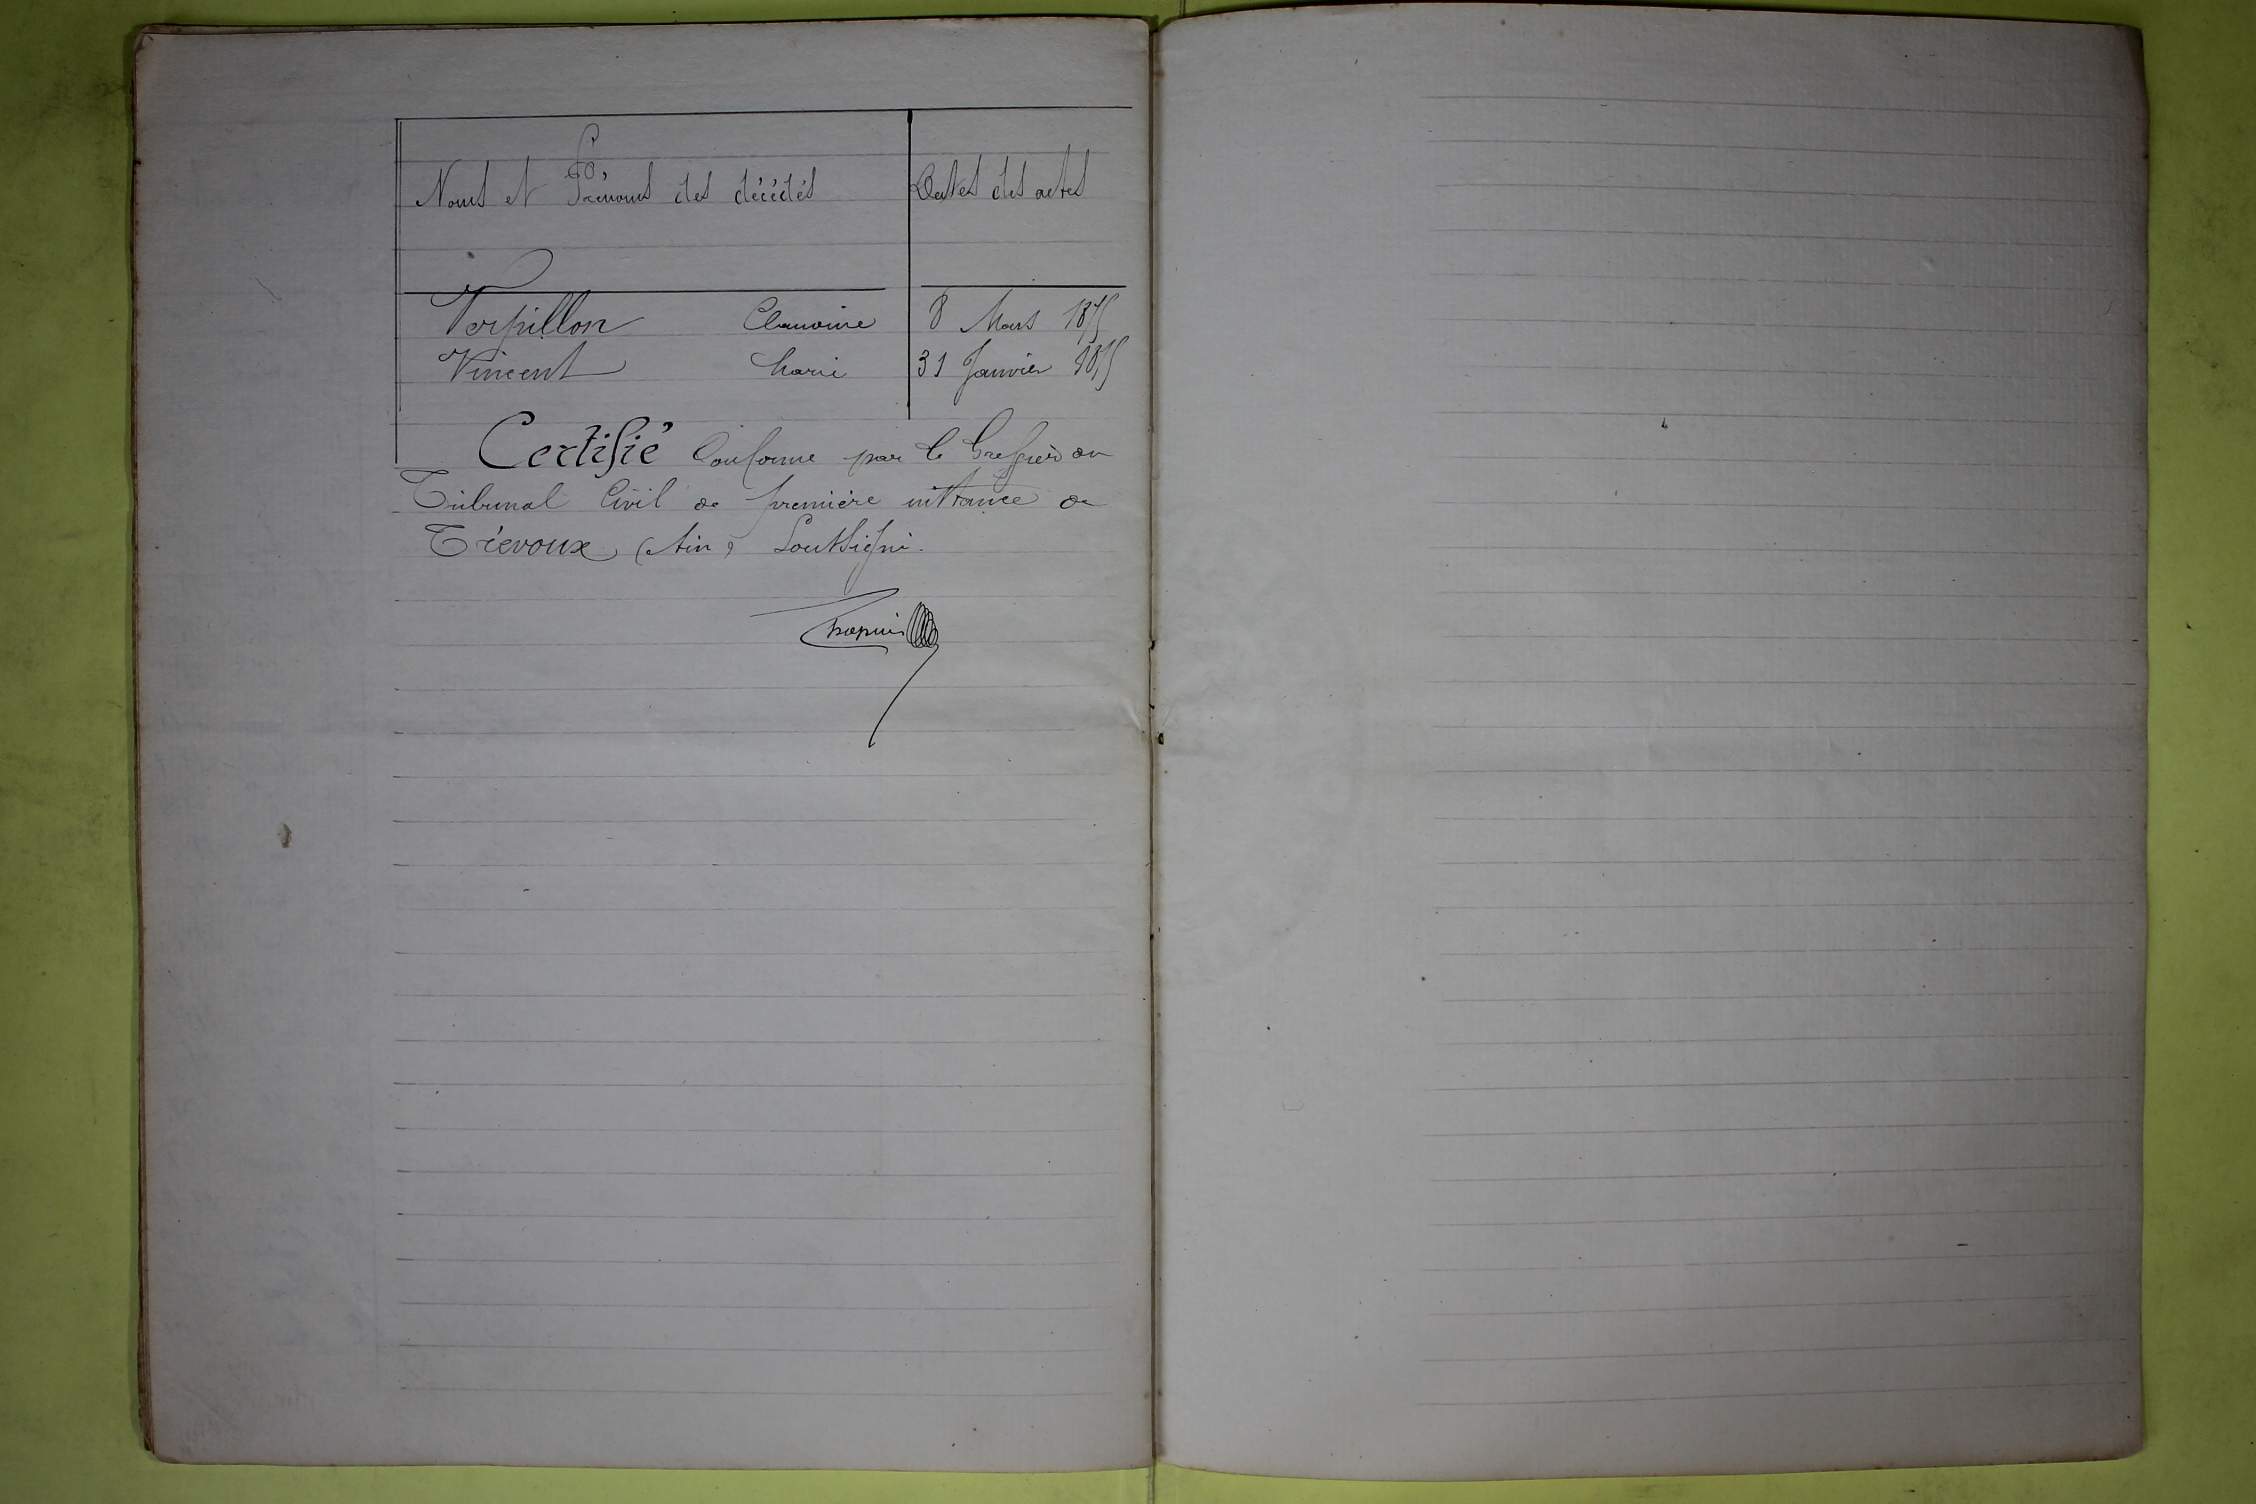 Noms et Prénoms des décédés Dates des actes
Verpillon Claudine 8 Mars 1875
Vincent Marie 31 Janvier 1875
Certifié Conforme par le Greffier du
Tribunal Civil de première instance de
Trévoux (Ain) Soussigné.